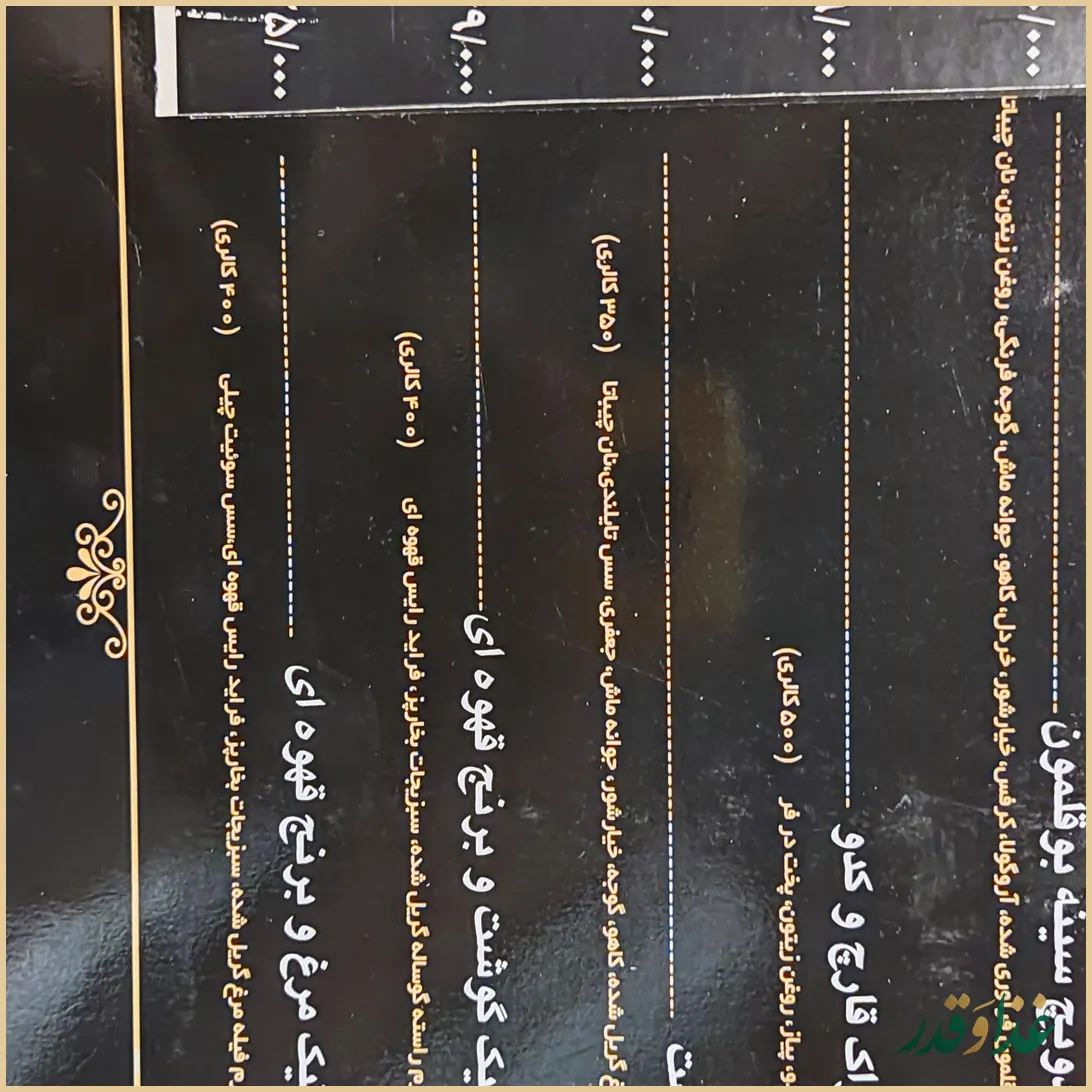 سینه بوقلمون ۰/۰۰۰
شده، آروگولا، کرفس، خیارشور، خردل، کاهو، جوانه ماش، گوجه فرنگی، روغن زیتون، نان چیباتا
قارچ و کدو /۰۰۰
پیاز، روغن زیتون، پخت در فر (۵۰۰ کالری)
۰/۰۰۰
گریل شده، کاهو، گوجه، خیارشور، جوانه ماش، جعفری، سس تایلندی،نان چیباتا (۳۵۰ کالری)
گوشت و برنج قهوه ای ۹/۰۰۰
راسته گوساله گریل شده، سبزیجات بخارپز، فراید رایس قهوه ای (۴۰۰ کالری)
مرغ و برنج قهوه ای ۵/۰۰۰
فیله مرغ گریل شده، سبزیجات بخارپز، فراید رایس قهوه ای،سس سوئیت چیلی (۴۰۰ کالری)
غذا وَ قدر